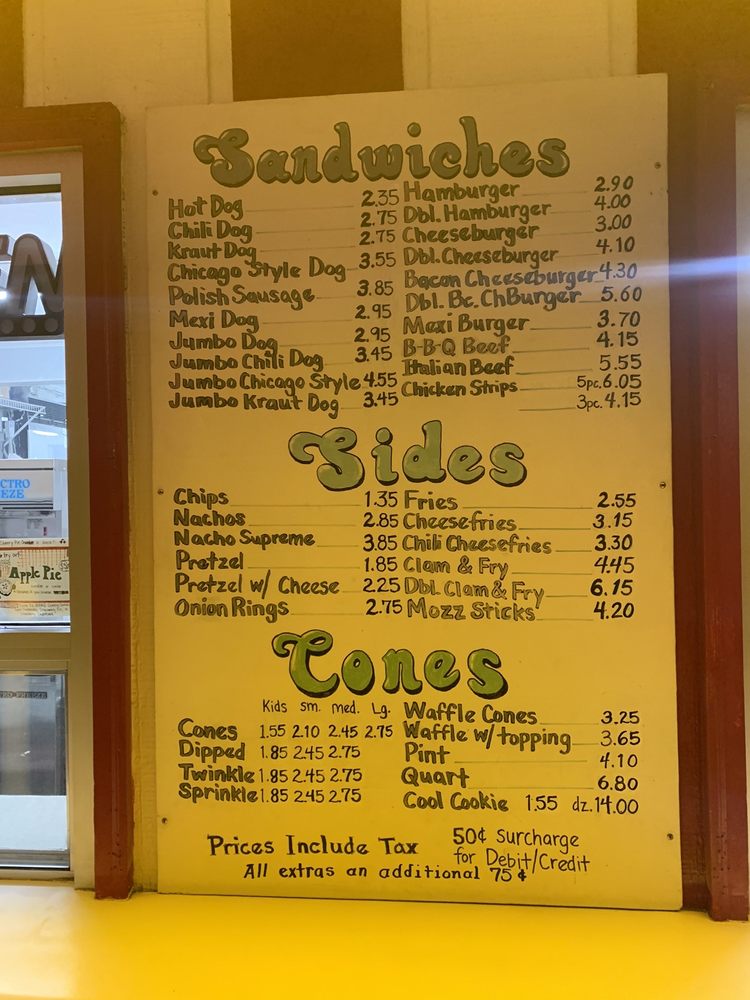 Sandwiches
Hot Dog 2.35
Chili Dog 2.75
Kraut Dog 2.75
Chicago Style Dog 3.55
Polish Sausage 3.85
Mexi Dog 2.95
Jumbo Dog 2.95
Jumbo Chili Dog 3.45
Jumbo Chicago Style 4.55
Jumbo Kraut Dog 3.45
Hamburger 2.90
Dbl. Hamburger 4.00
Cheeseburger 3.00
Dbl. Cheeseburger 4.10
Bacon Cheeseburger 4.30
Dbl. Bc. ChBurger 5.60
Mexi Burger 3.70
B-B-Q Beef 4.15
Italian Beef 5.55
Chicken Strips 5pc. 6.05
3pc. 4.15
Sides
Chips 1.35
Nachos 2.85
Nacho Supreme 3.85
Pretzel 1.85
Pretzel w/ Cheese 2.25
Onion Rings 2.75
Fries 2.55
Cheesefries 3.15
Chili Cheesefries 3.30
Clam & Fry 4.45
Dbl. Clam & Fry 6.15
Mozz Sticks 4.20
Cones
Kids sm. med. Lg.
Cones 1.55 2.10 2.45 2.75
Dipped 1.85 2.45 2.75
Twinkle 1.85 2.45 2.75
Sprinkle 1.85 2.45 2.75
Waffle Cones 3.25
Waffle w/ topping 3.65
Pint 4.10
Quart 6.80
Cool Cookie 1.55 dz. 14.00
Prices Include Tax
50¢ Surcharge
for Debit/Credit
All extras an additional 75¢
CTRO
EZE
Apple Pie